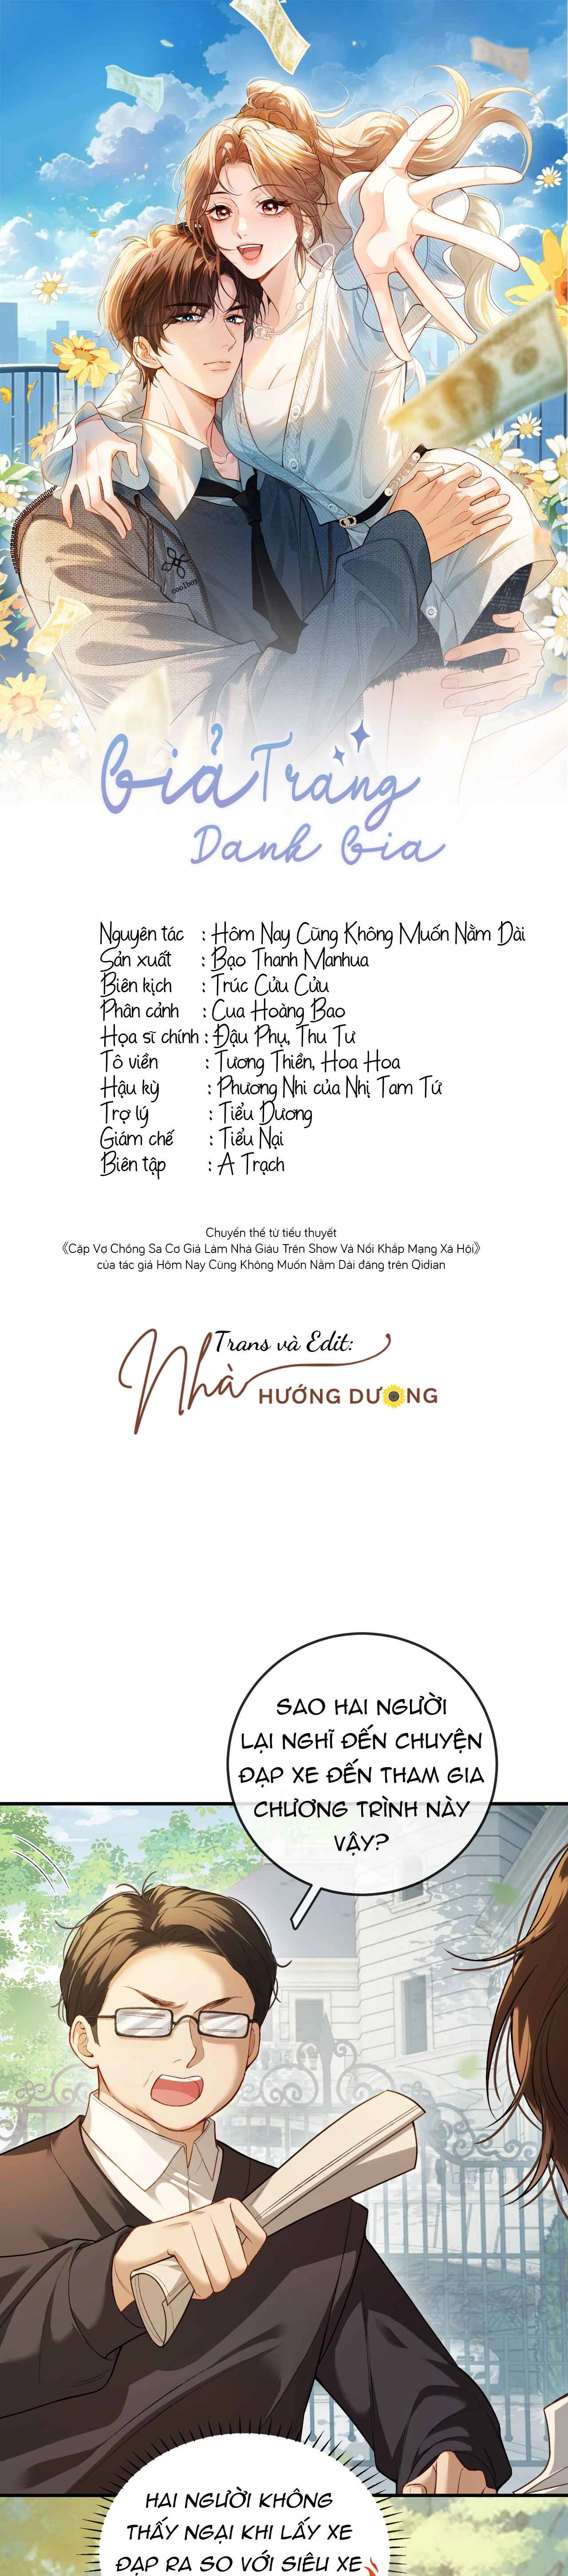 coolboy
Giả Trang
Danh Gia
Nguyên tác : Hôm Nay Cũng Không Muốn Nằm Dài
Sản xuất : Bạo Thanh Manhua
Biên kịch : Trúc Cửu Cửu
Phân cảnh : Cua Hoàng Bao
Họa sĩ chính : Đậu Phụ, Thu Tư
Tô viền : Tương Thiền, Hoa Hoa
Hậu kỳ : Phương Nhi của Nhị Tam Tứ
Trợ lý : Tiểu Dương
Giám chế : Tiểu Nại
Biên tập : A Trạch
Chuyển thể từ tiểu thuyết
《Cặp Vợ Chồng Sa Cơ Giả Làm Nhà Giàu Trên Show Và Nổi Khắp Mạng Xã Hội》
của tác giả Hôm Nay Cũng Không Muốn Nằm Dài đăng trên Qidian
Trans và Edit:
Nhà HƯỚNG DƯƠNG
SAO HAI NGƯỜI
LẠI NGHĨ ĐẾN CHUYỆN
ĐẠP XE ĐẾN THAM GIA
CHƯƠNG TRÌNH NÀY
VẬY?
HAI NGƯỜI KHÔNG
THẤY NGẠI KHI LẤY XE
ĐẠP RA SO VỚI SIÊU XE